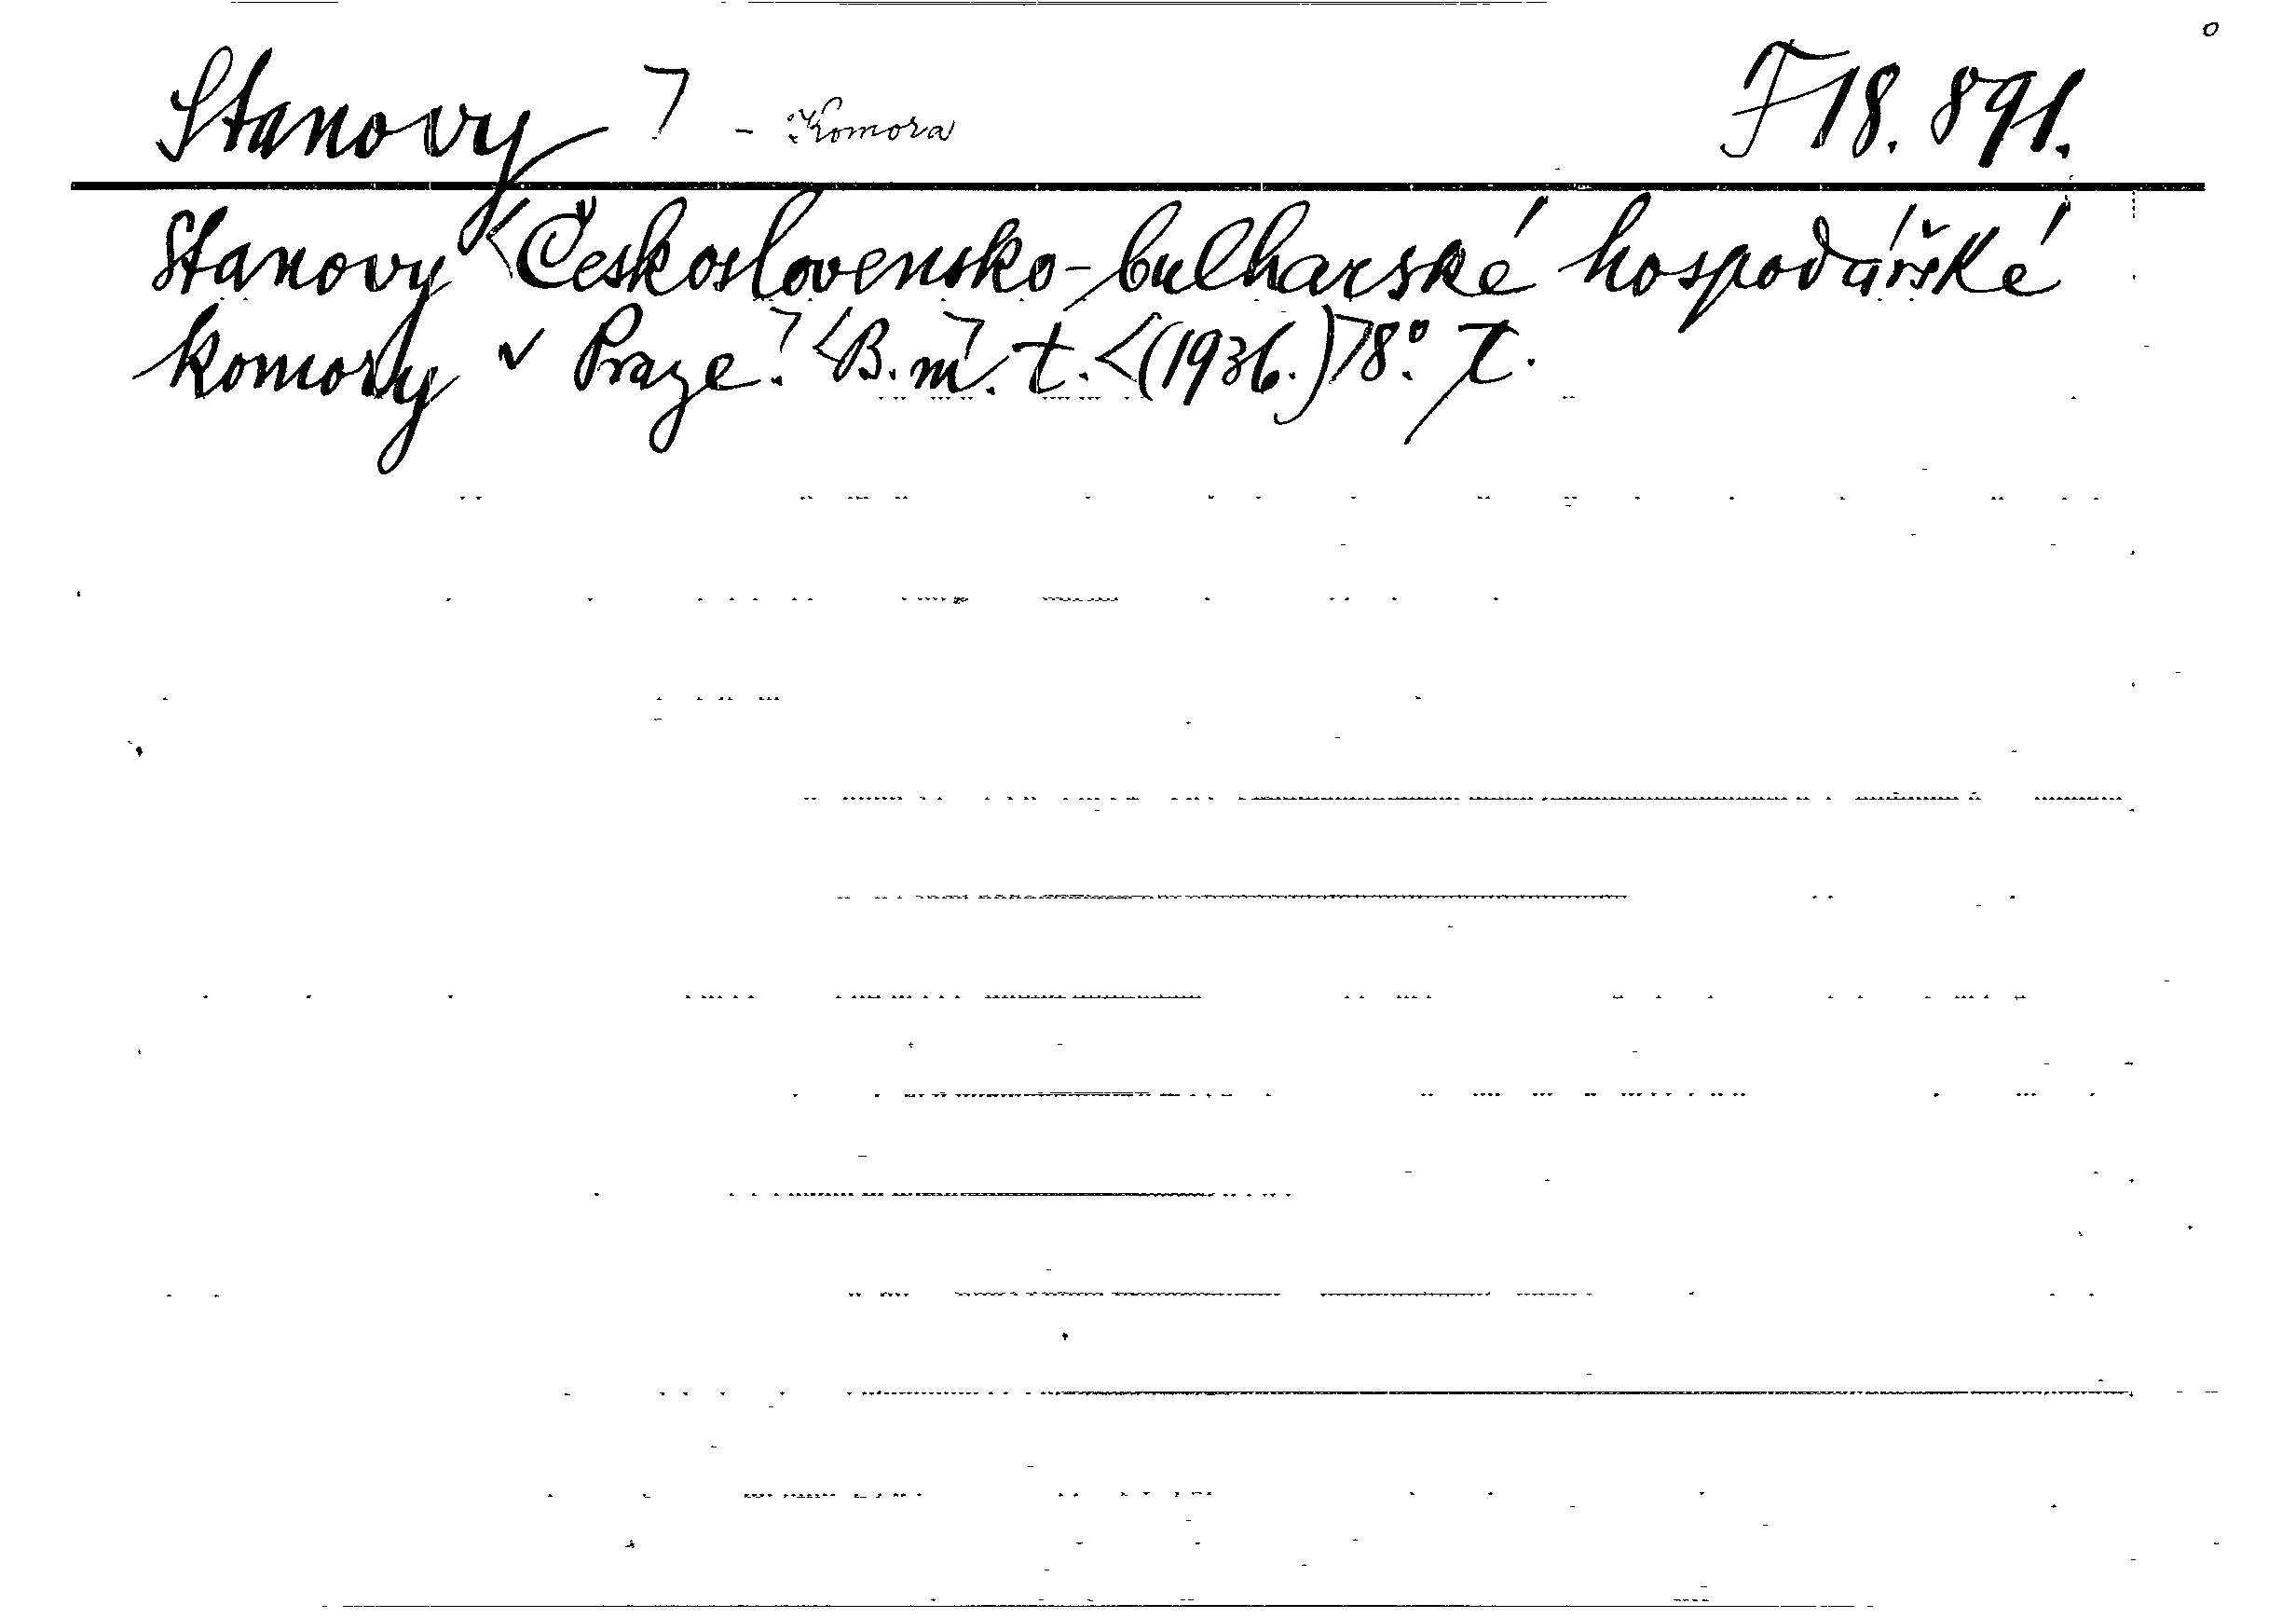 Stanovy ⁊ - Komora F 18.891.
Stanovy <Československo-bulharské hospodářské
komory v Praze.⁊ <B. m⁊. t. <(1936.)⁊ 8°. T.